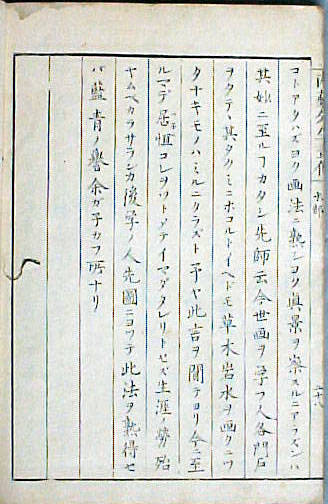 コトアタハズヨク画法ニ熟シヨク真景ヲ察スルニアラズンハ
其妙ニ至ルヿカタシ先師云今世画ヲ学フ人各門戸
ヲタテヽ其タクミニホコルトイヘドモ草木岩水ヲ画クニツ
タナキモノハミルニタラズト予ヤ此言ヲ聞テヨリ今ニ至
ルマデ居恒コレヲツトメテイマダタレリトセズ生涯ノ勞殆
ヤムベカラサランカ後学ノ人先圖ニヨツテ此法ヲ熟得セ
バ藍青ノ譽余ガ子カフ所ナリ